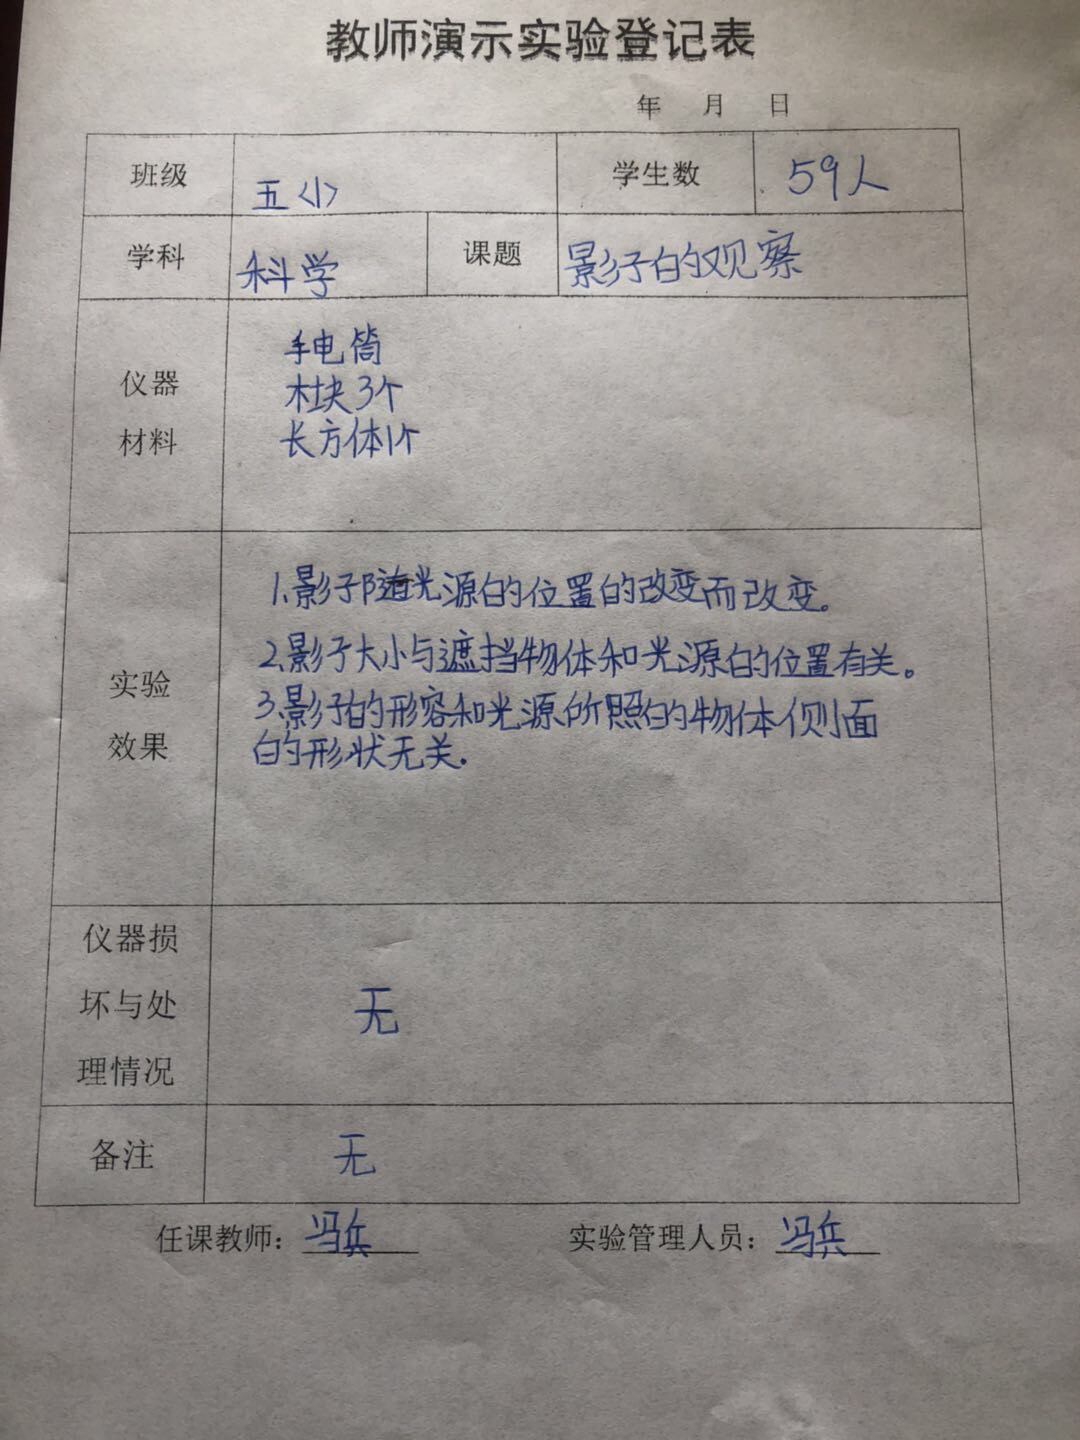 教师演示实验登记表
年 月 日
班级 五〈1〉 学生数 59人
学科 科学 课题 影子的观察
仪器
材料
手电筒
木块3个
长方体1个
实验
效果
1.影子随光源的位置的改变而改变。
2.影子大小与遮挡物体和光源的位置有关。
3.影子的形容和光源所照的物体侧面
的形状无关.
仪器损
坏与处
理情况
无
备注 无
任课教师：冯兵 实验管理人员：冯兵